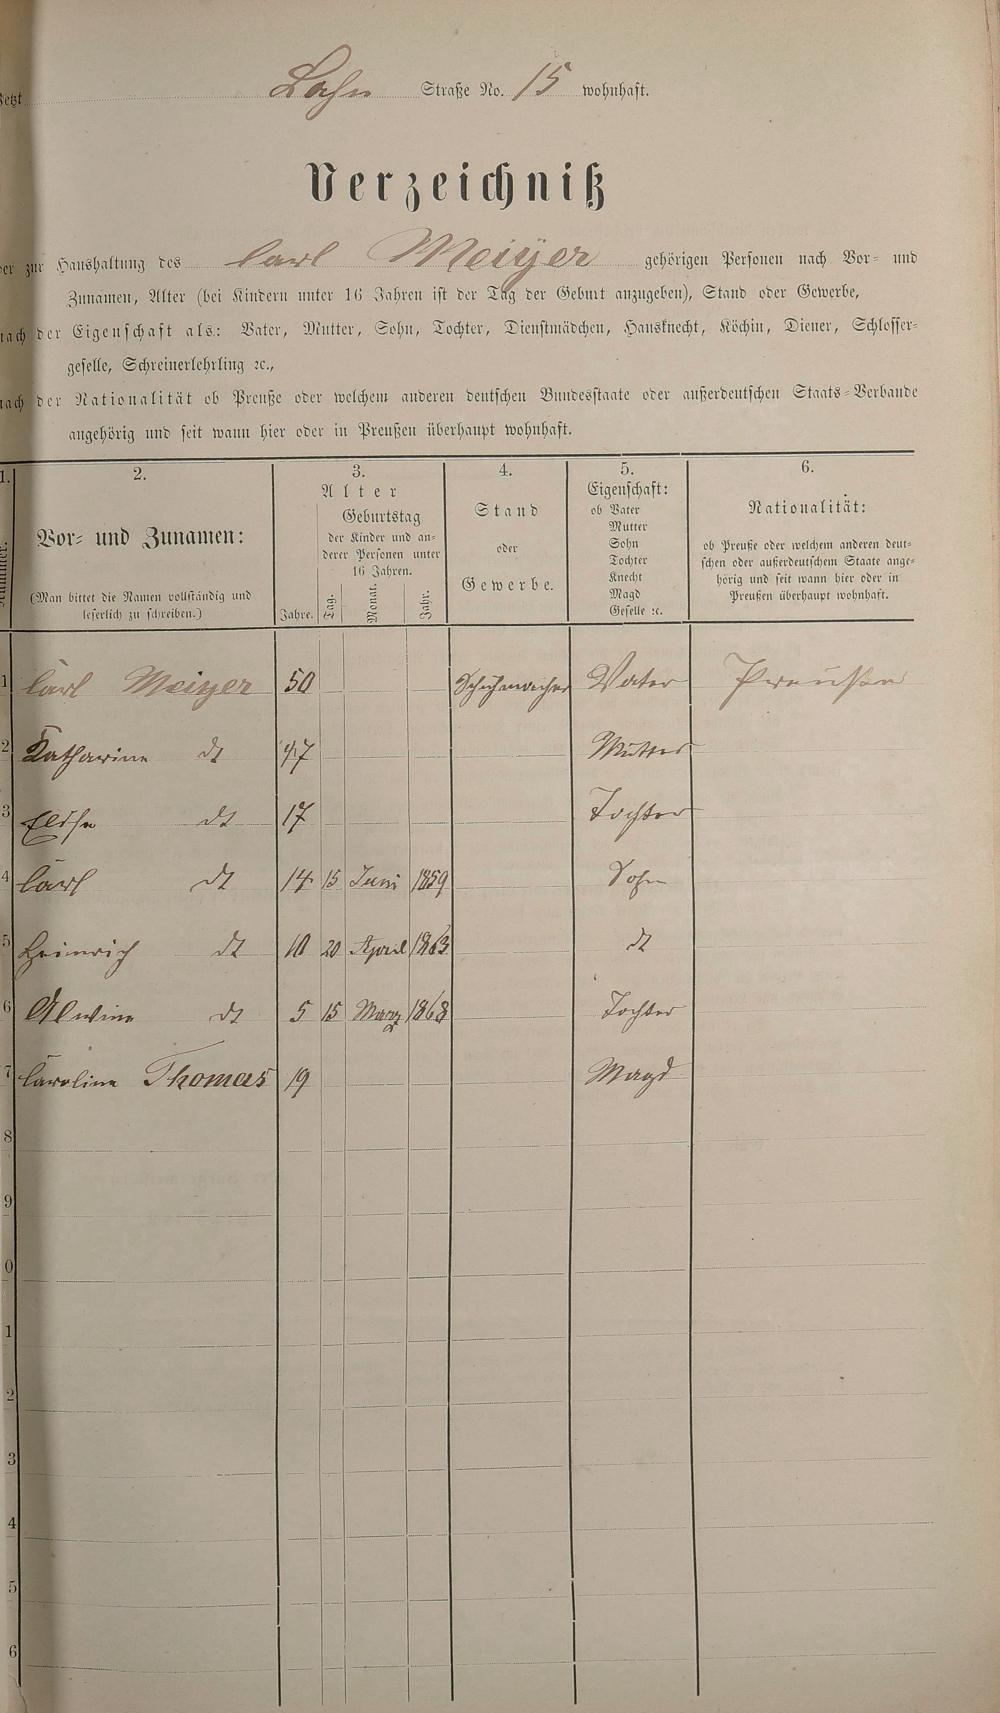 Jetzt Lahn Straße No. 15 wohnhaft.
Verzeichniß
der zur Haushaltung des Carl Meiyer gehörigen Personen nach Vor- und
Zunamen, Alter (bei Kindern unter 16 Jahren ist der Tag der Geburt anzugeben), Stand oder Gewerbe,
nach der Eigenschaft als: Vater, Mutter, Sohn, Tochter, Dienstmädchen, Hausknecht, Köchin, Diener, Schlosser-
geselle, Schreinerlehrling ꝛc.,
nach der Nationalität ob Preuße oder welchem anderen deutschen Bundesstaate oder außerdeutschen Staats-Verbande
angehörig und seit wann hier oder in Preußen überhaupt wohnhaft.
1. 2. 3. 4. 5. 6.
Nummer.
Vor- und Zunamen:
(Man bittet die Namen vollständig und
leserlich zu schreiben.)
Alter
Jahre.
Geburtstag
der Kinder und an-
derer Personen unter
16 Jahren.
Tag. Monat. Jahr.
Stand
oder
Gewerbe.
Eigenschaft:
ob Vater
Mutter
Sohn
Tochter
Knecht
Magd
Geselle ꝛc.
Nationalität:
ob Preuße oder welchem anderen deut-
schen oder außerdeutschem Staate ange-
hörig und seit wann hier oder in
Preußen überhaupt wohnhaft.
1 Carl Meiyer 50 Schuhmacher Vater Preuße
2 Katharine dt 47 Mutter
3 Elise dt 17 Tochter
4 Carl dt 14 15 Juni 1859 Sohn
5 Heinrich dt 10 20 April 1863 dt
6 Alwine dt 5 15 März 1868 Tochter
7 Caroline Thomas 19 Magd
8
9
0
1
2
3
4
5
6